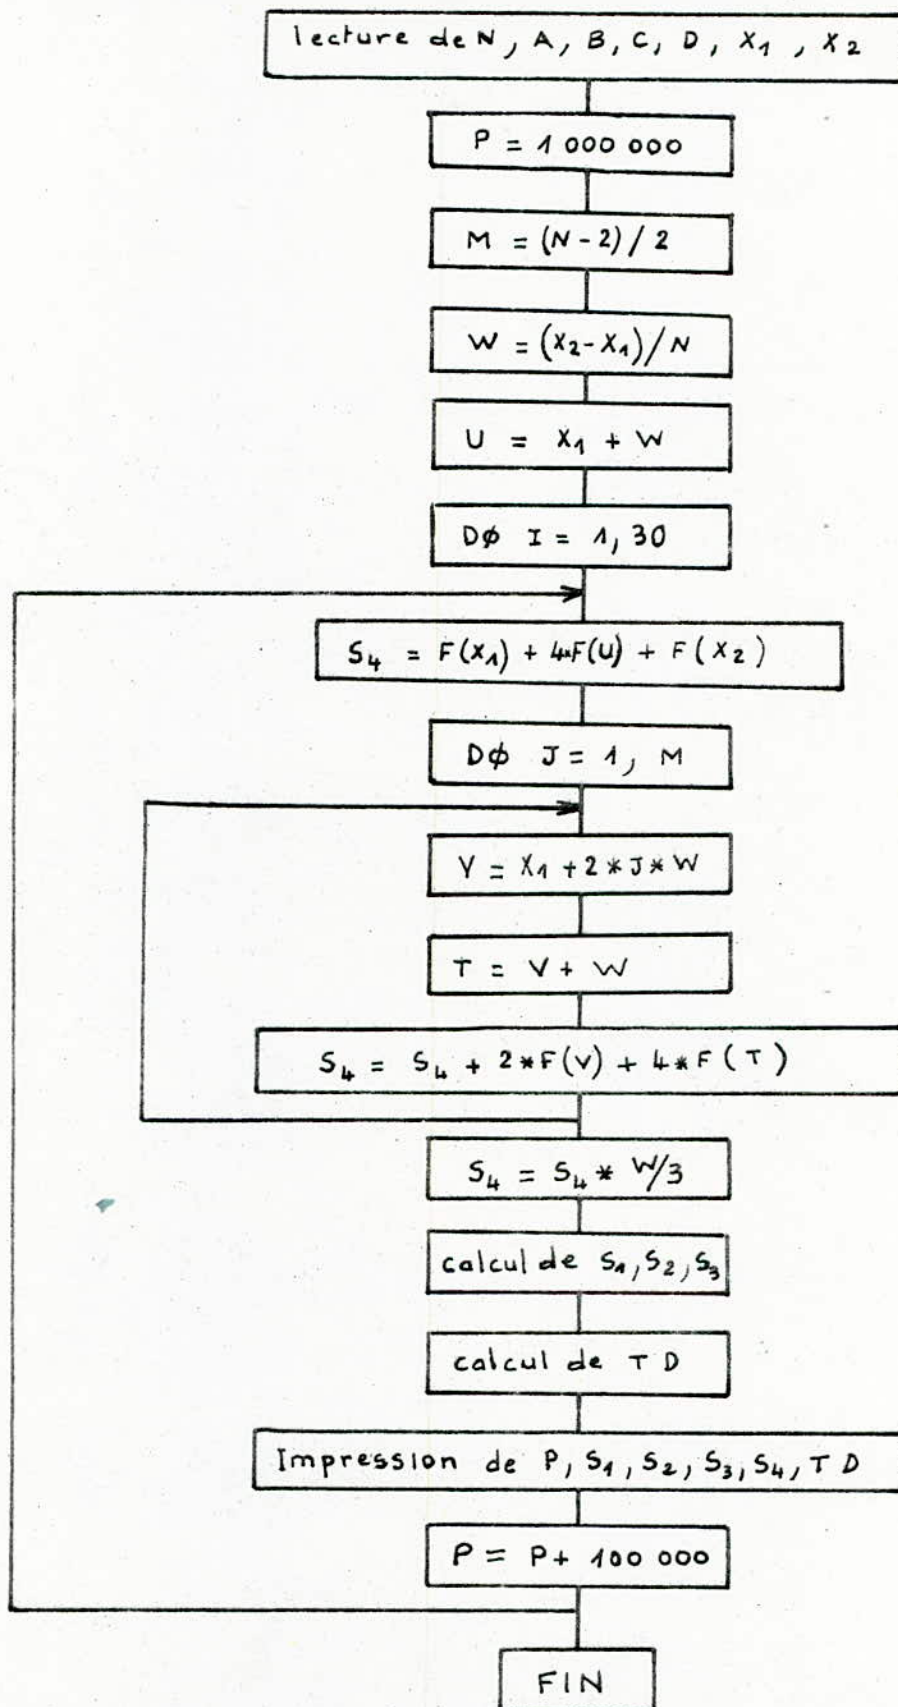 lecture de N, A, B, C, D, X1, X2
P = 1 000 000
M = (N - 2) / 2
W = (X2 - X1) / N
U = X1 + W
DØ I = 1, 30
S4 = F(X1) + 4*F(U) + F(X2)
DØ J = 1, M
V = X1 + 2 * J * W
T = V + W
S4 = S4 + 2*F(V) + 4*F(T)
S4 = S4 * W/3
calcul de S1, S2, S3
calcul de T D
Impression de P, S1, S2, S3, S4, T D
P = P + 100 000
FIN